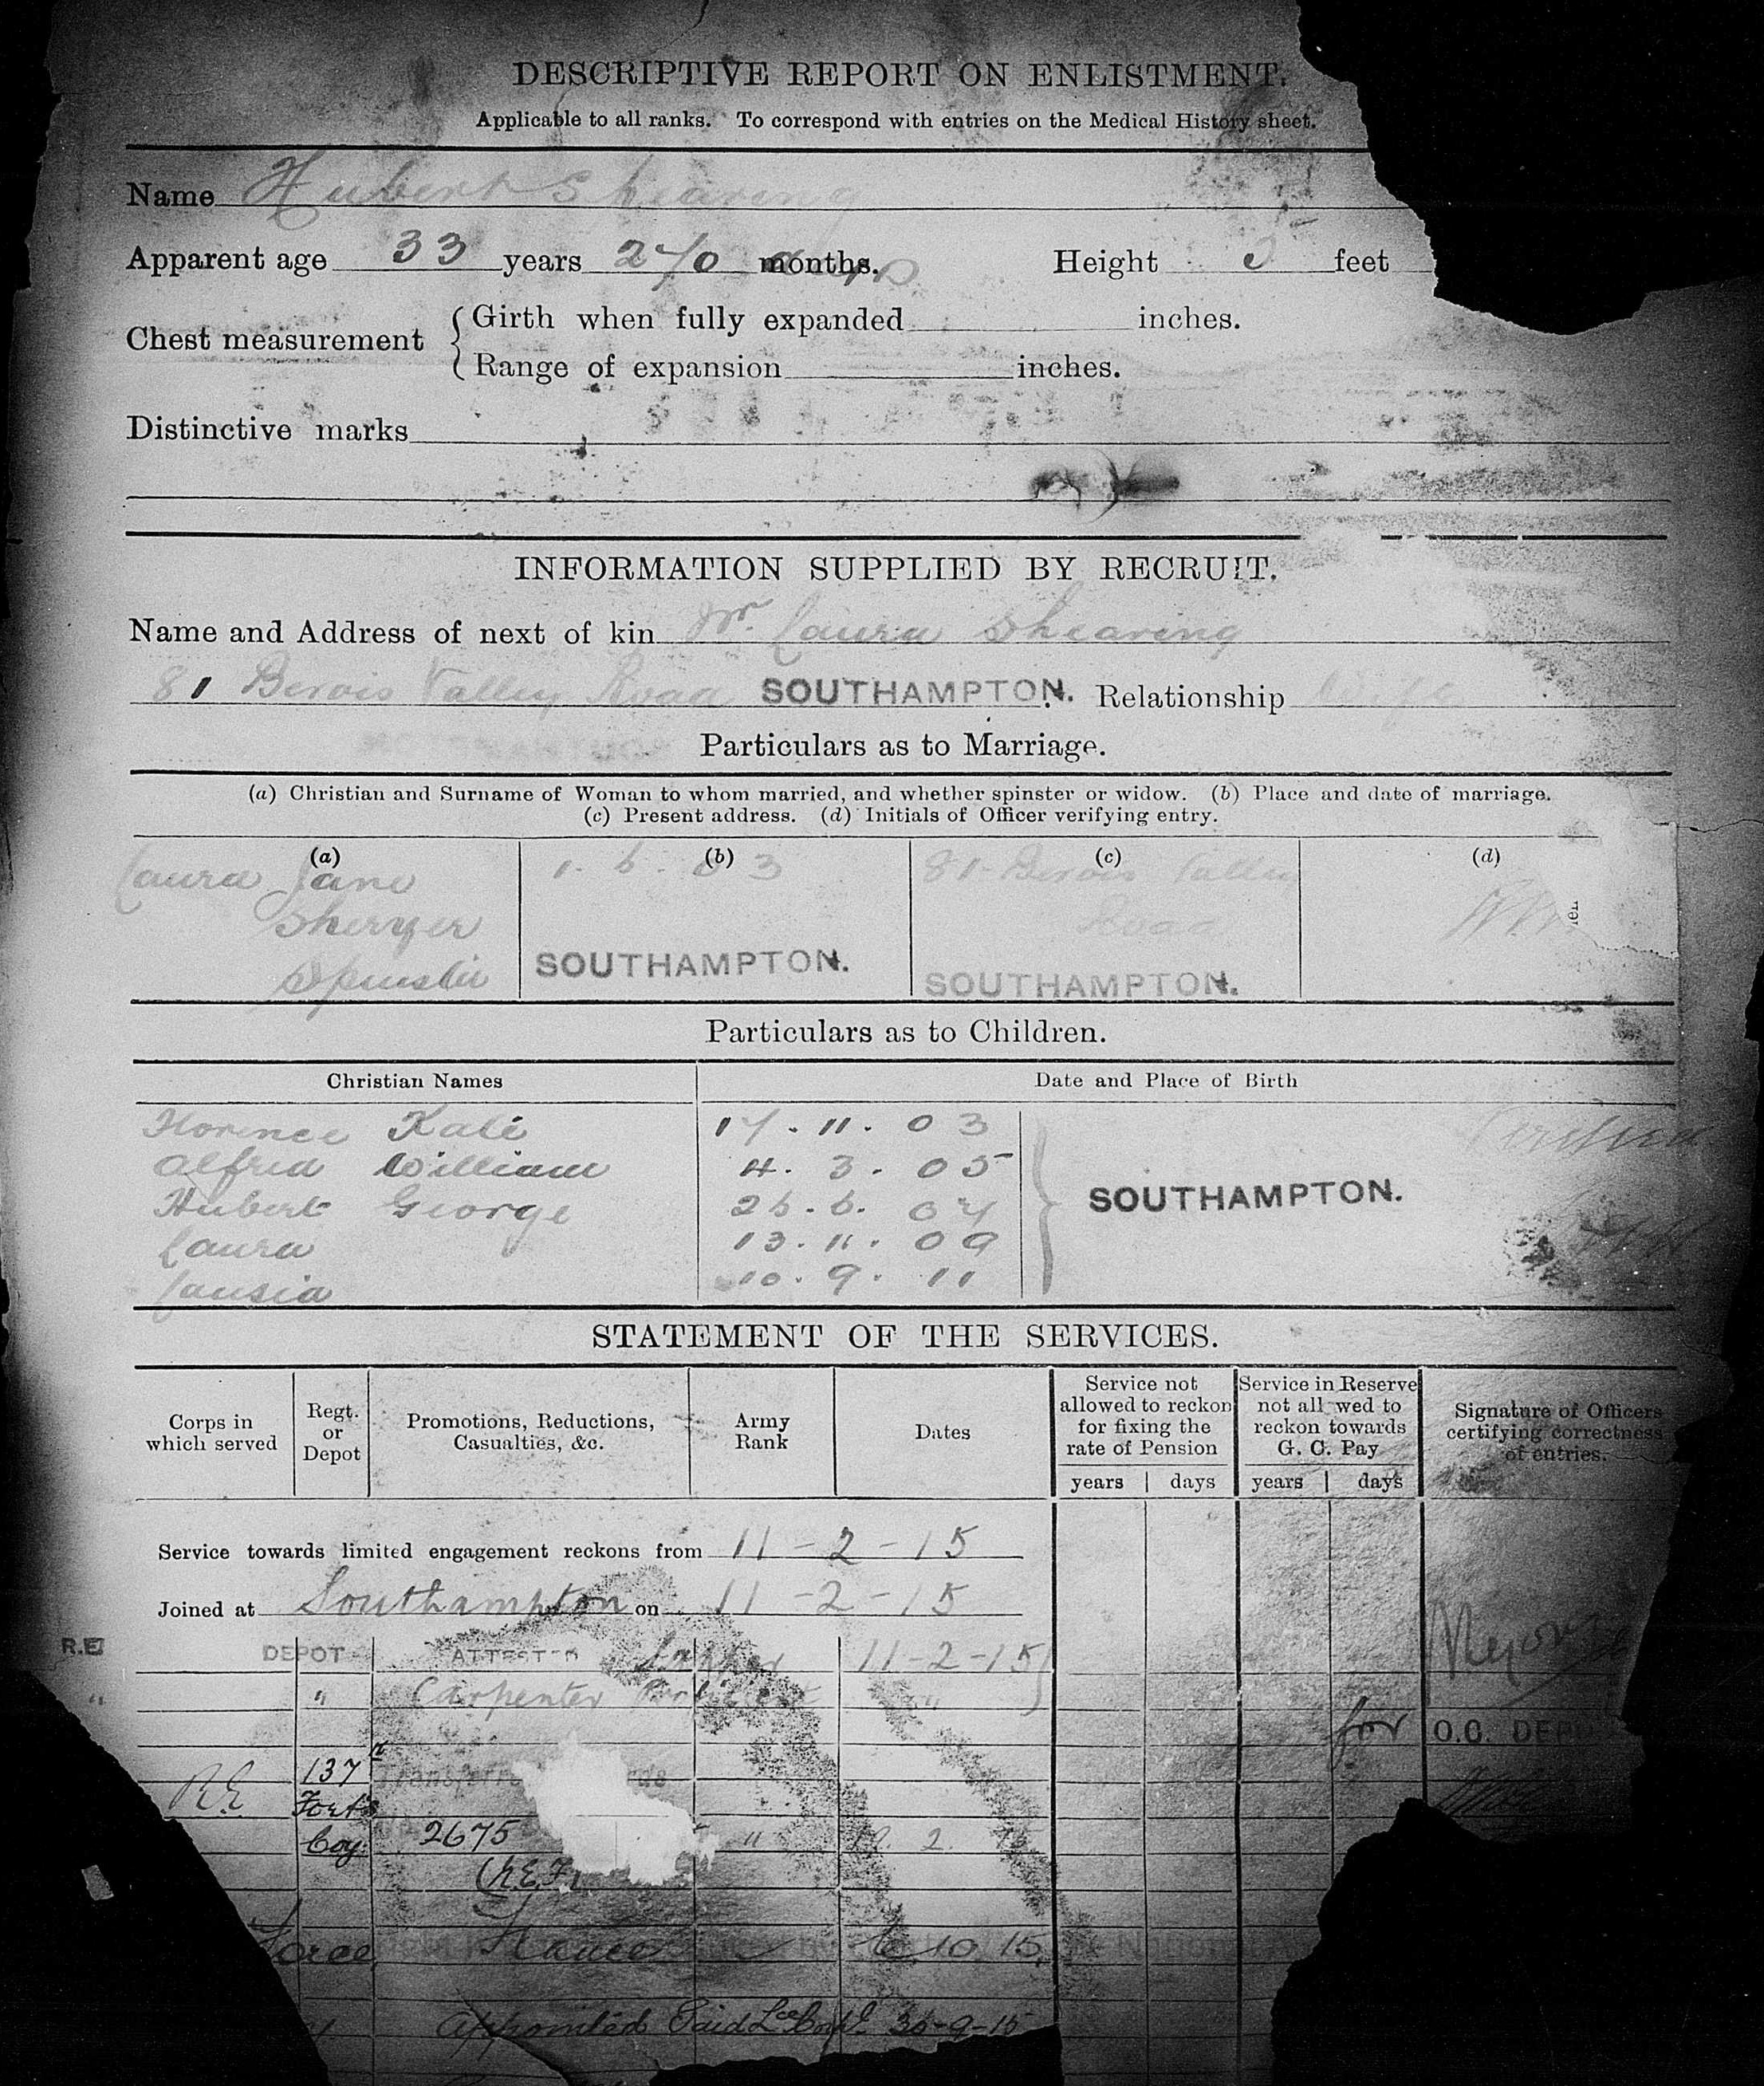 DESCRIPTIVE REPORT ON ENLISTMENT.
Applicable to all ranks. To correspond with entries on the Medical History sheet.
Name Hubert Shearing
Apparent age 33 years 240 months. days Height 5 feet
Chest measurement { Girth when fully expanded inches.
Range of expansion inches.
Distinctive marks
INFORMATION SUPPLIED BY RECRUIT.
Name and Address of next of kin Laura Shearing
81 Bevois Valley Road SOUTHAMPTON. Relationship wife
Particulars as to Marriage.
(a) Christian and Surname of Woman to whom married, and whether spinster or widow. (b) Place and date of marriage.
(c) Present address. (d) Initials of Officer verifying entry.
(a) (b) (c) (d)
Laura Jane 1. 6. 03 81 Bevois Valley
Road
Spinster SOUTHAMPTON. SOUTHAMPTON.
Particulars as to Children.
Christian Names Date and Place of Birth
Florence Kate 17. 11. 03
Alfred William 4. 3. 05
Hubert George 26. 6. 07 SOUTHAMPTON.
Laura 13. 11. 09
10. 9. 11
STATEMENT OF THE SERVICES.
Corps in which served Regt. or Depot Promotions, Reductions, Casualties, &c. Army Rank Dates Service not allowed to reckon for fixing the rate of Pension Service in Reserve not all wed to reckon towards G. C. Pay Signature of Officers certifying correctness of entries.
years days years days
Service towards limited engagement reckons from 11-2-15
Joined at Southampton on 11-2-15
R.E. DEPOT ATTESTED Sapper 11-2-15
" " Carpenter "
for O.C. DEP
R.E. 137
Fort's
Coy. 2675 " 2. 15
France 10 15
Appointed Paid Lce Corpl. 30-9-15